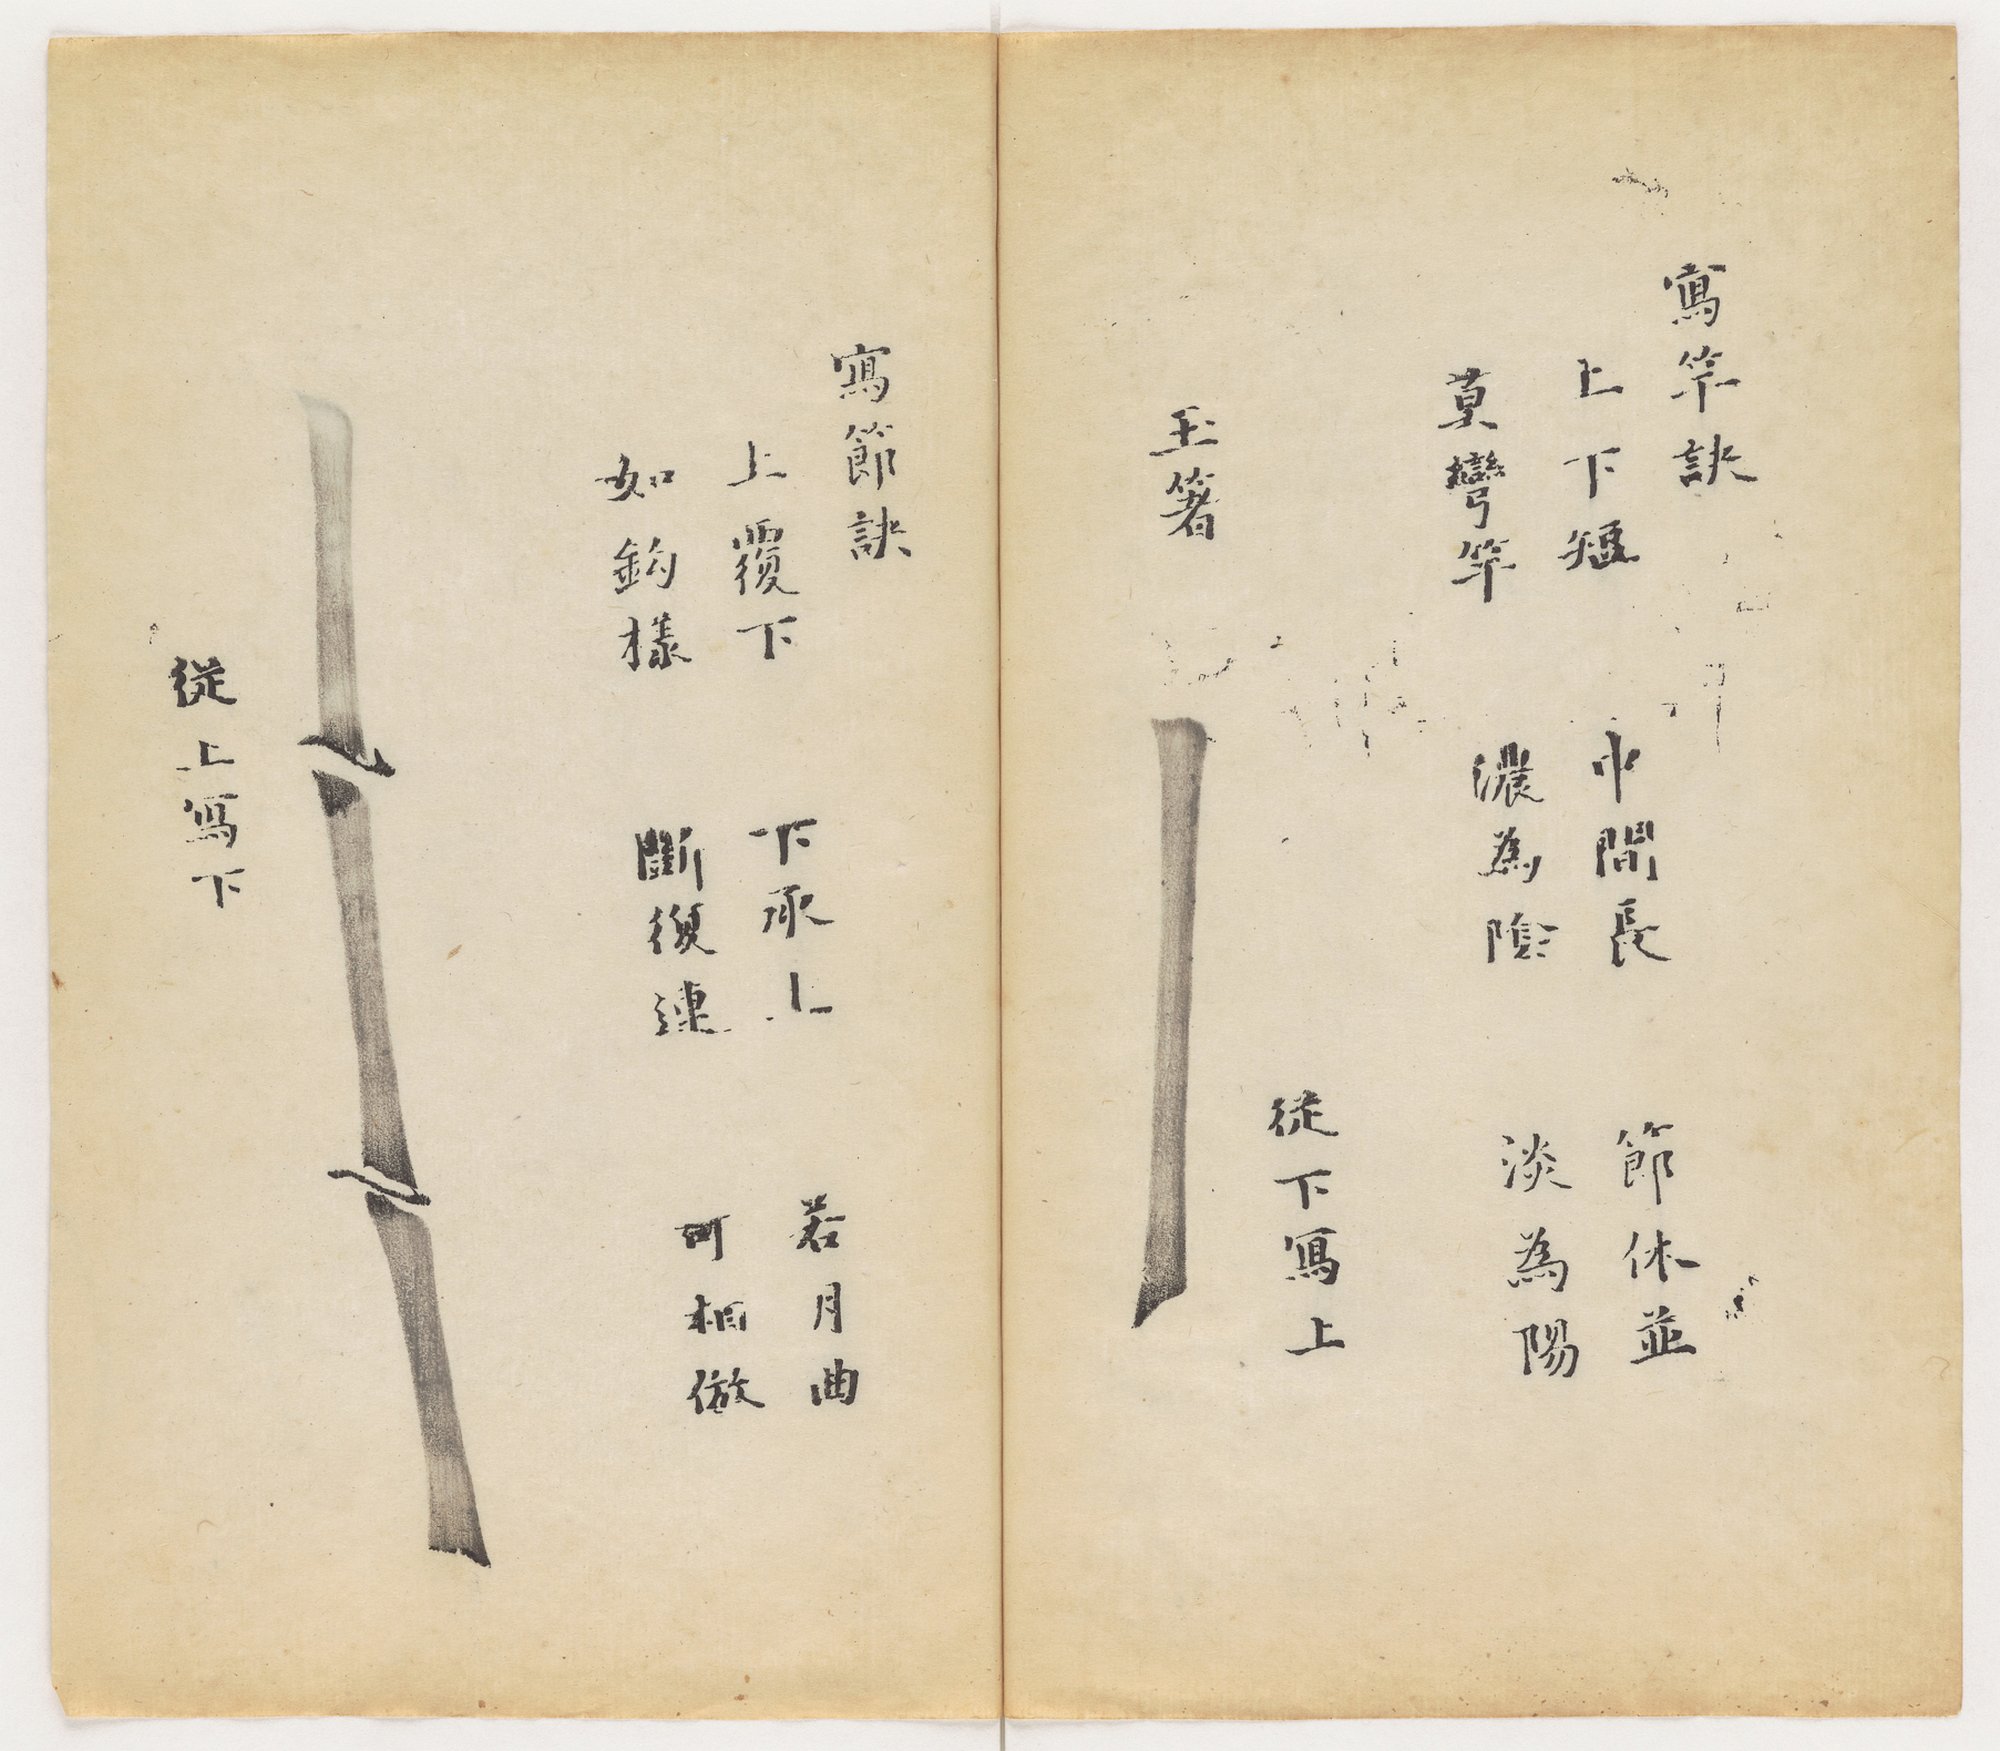 寫竿訣
上下短 中間長 節休並
莫彎竿 濃為陰 淡為陽
從下寫上
玉箸
寫節訣
上覆下 下承上 若月曲
如鈎樣 斷復連 可相倣
從上寫下